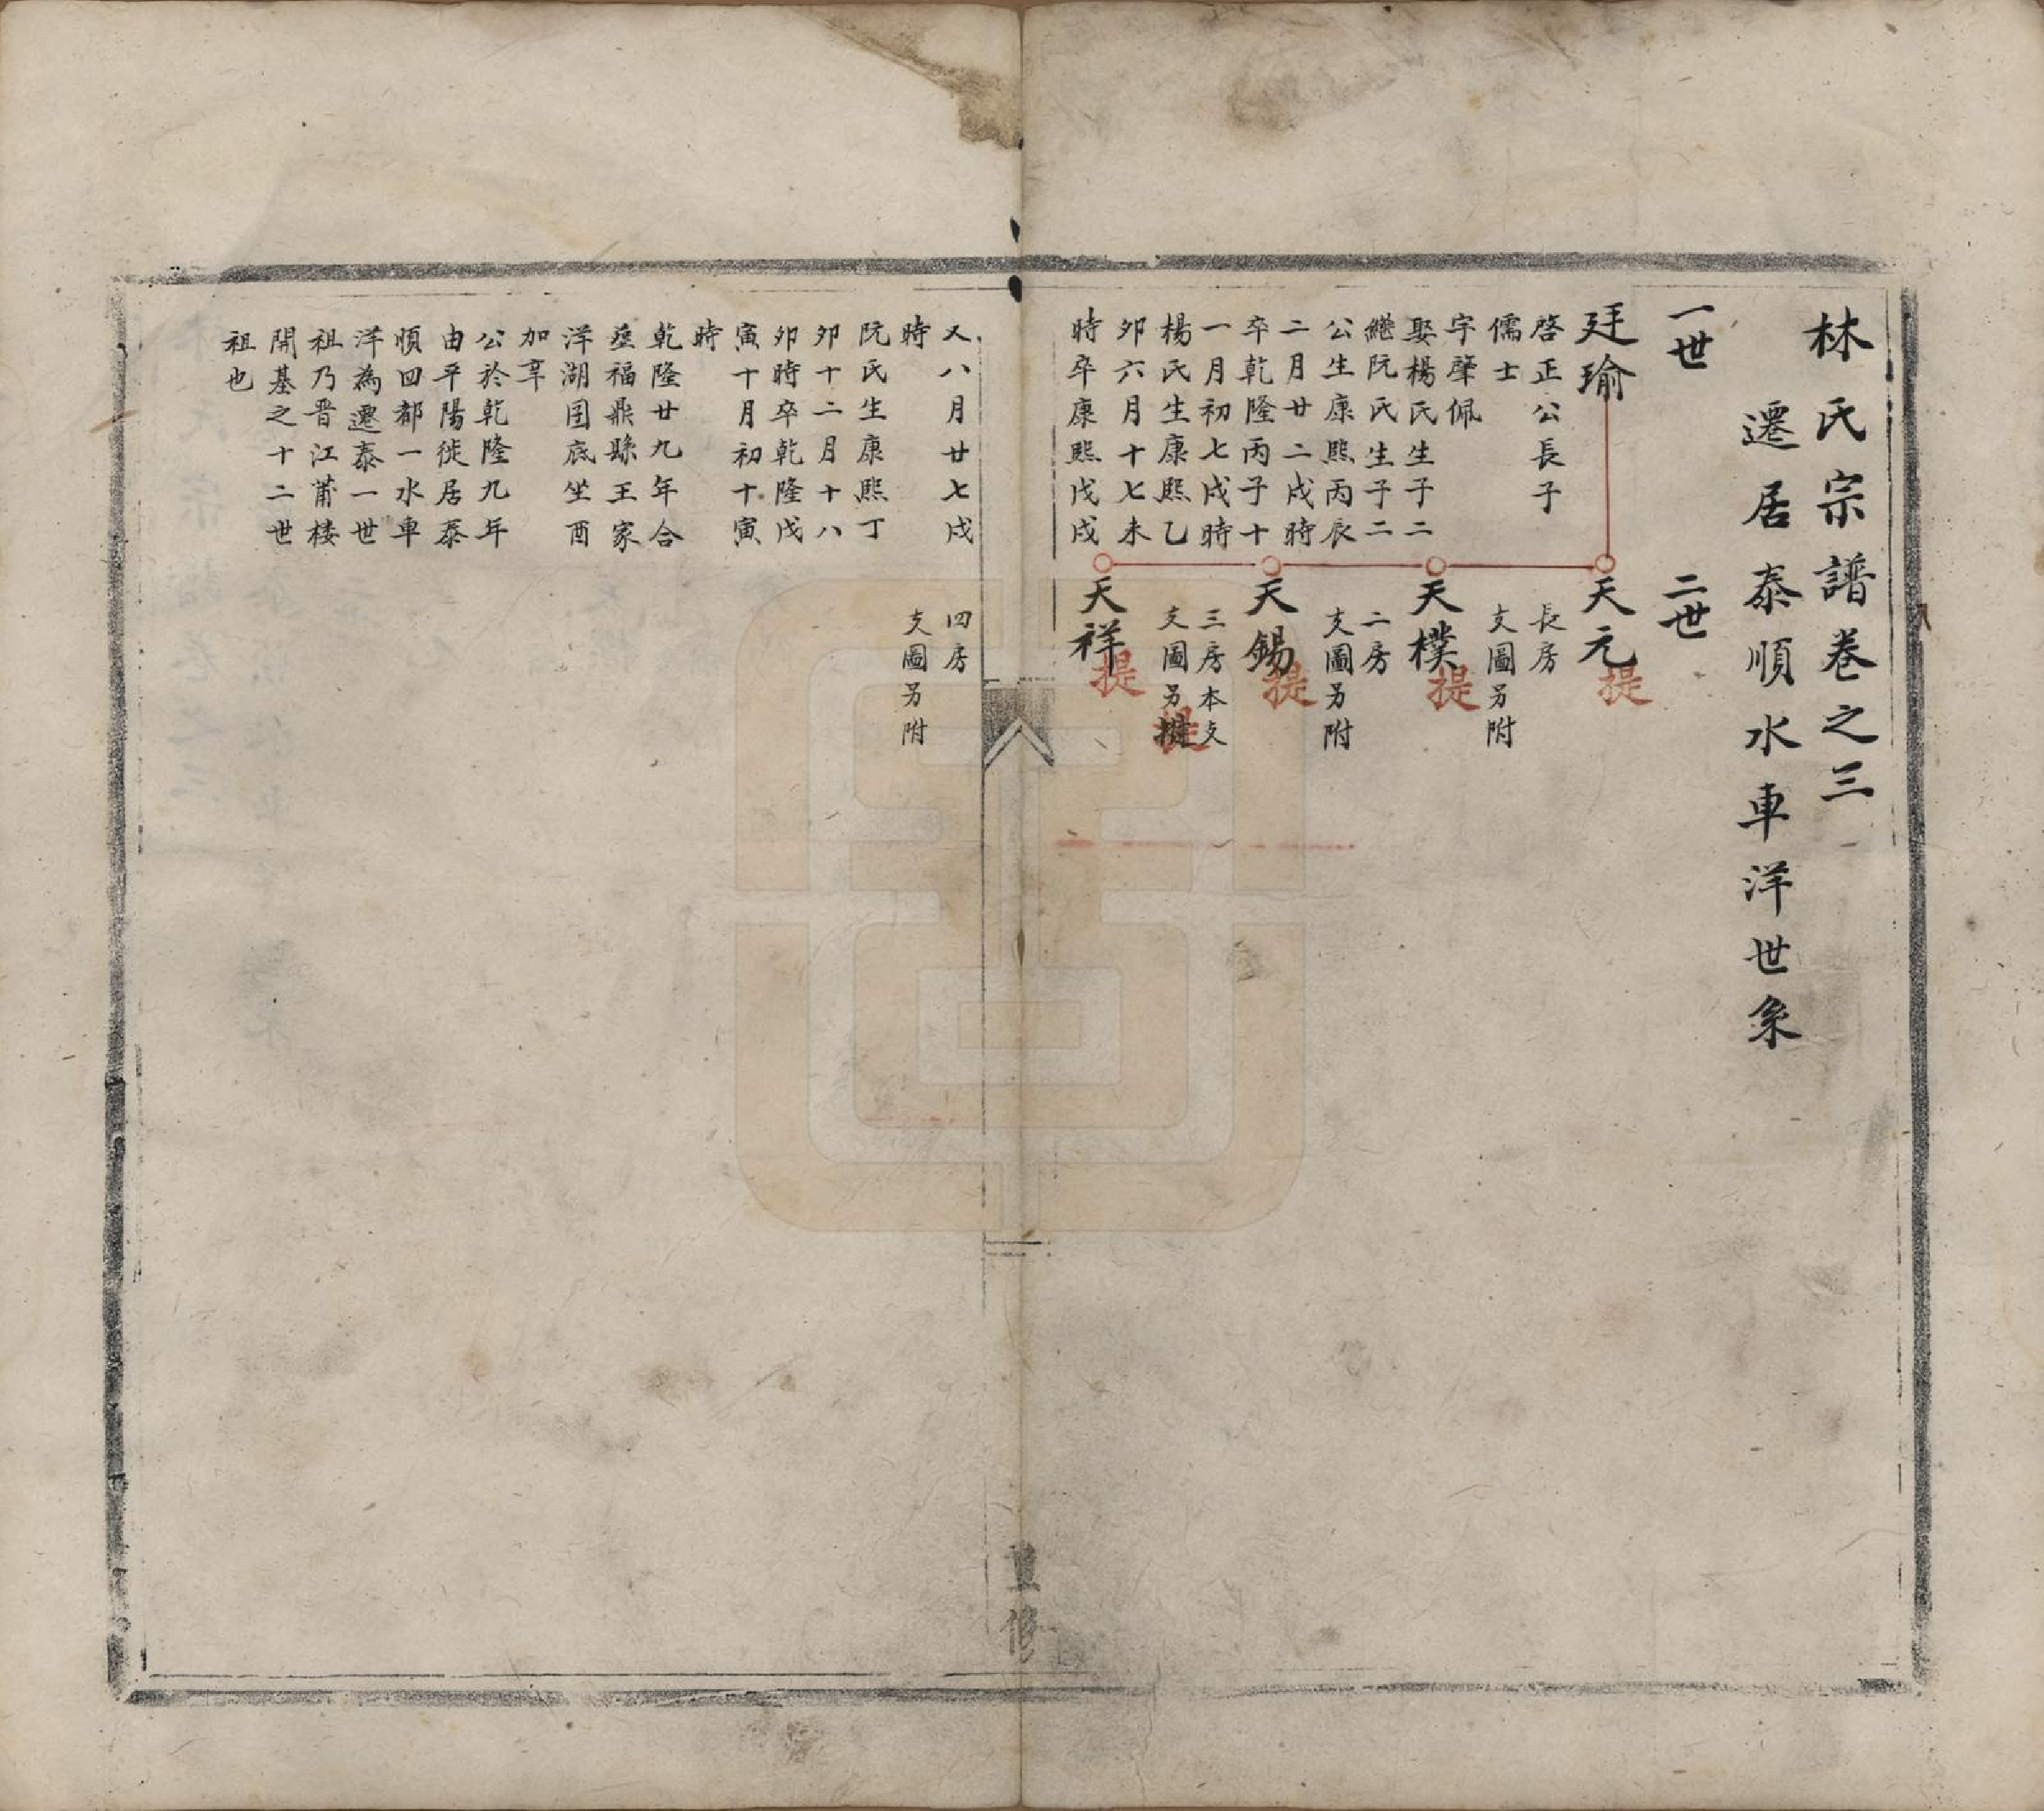 林氏宗譜卷之三
遷居泰順水車洋世系
一世
二世
廷瑜
啓正公長子
儒士
字肇佩
娶楊氏生子二
繼阮氏生子二
公生康熙丙辰
二月廿二戌時
卒乾隆丙子十
一月初七戌時
楊氏生康熙乙
卯六月十七未
時卒康熙戊戌
天元
提
長房
支圖另附
天樸
提
二房
支圖另附
天錫
提
三房本支
支圖另
提
天祥
提
重修
又八月廿七戌
時
阮氏生康熙丁
卯十二月十八
卯時卒乾隆戊
寅十月初十寅
時
乾隆廿九年合
塟福鼎縣王家
洋湖囯底坐酉
加辛
公於乾隆九年
由平陽徙居泰
順四都一水車
洋為遷泰一世
祖乃晋江莆楼
開基之十二世
祖也
四房
支圖另附